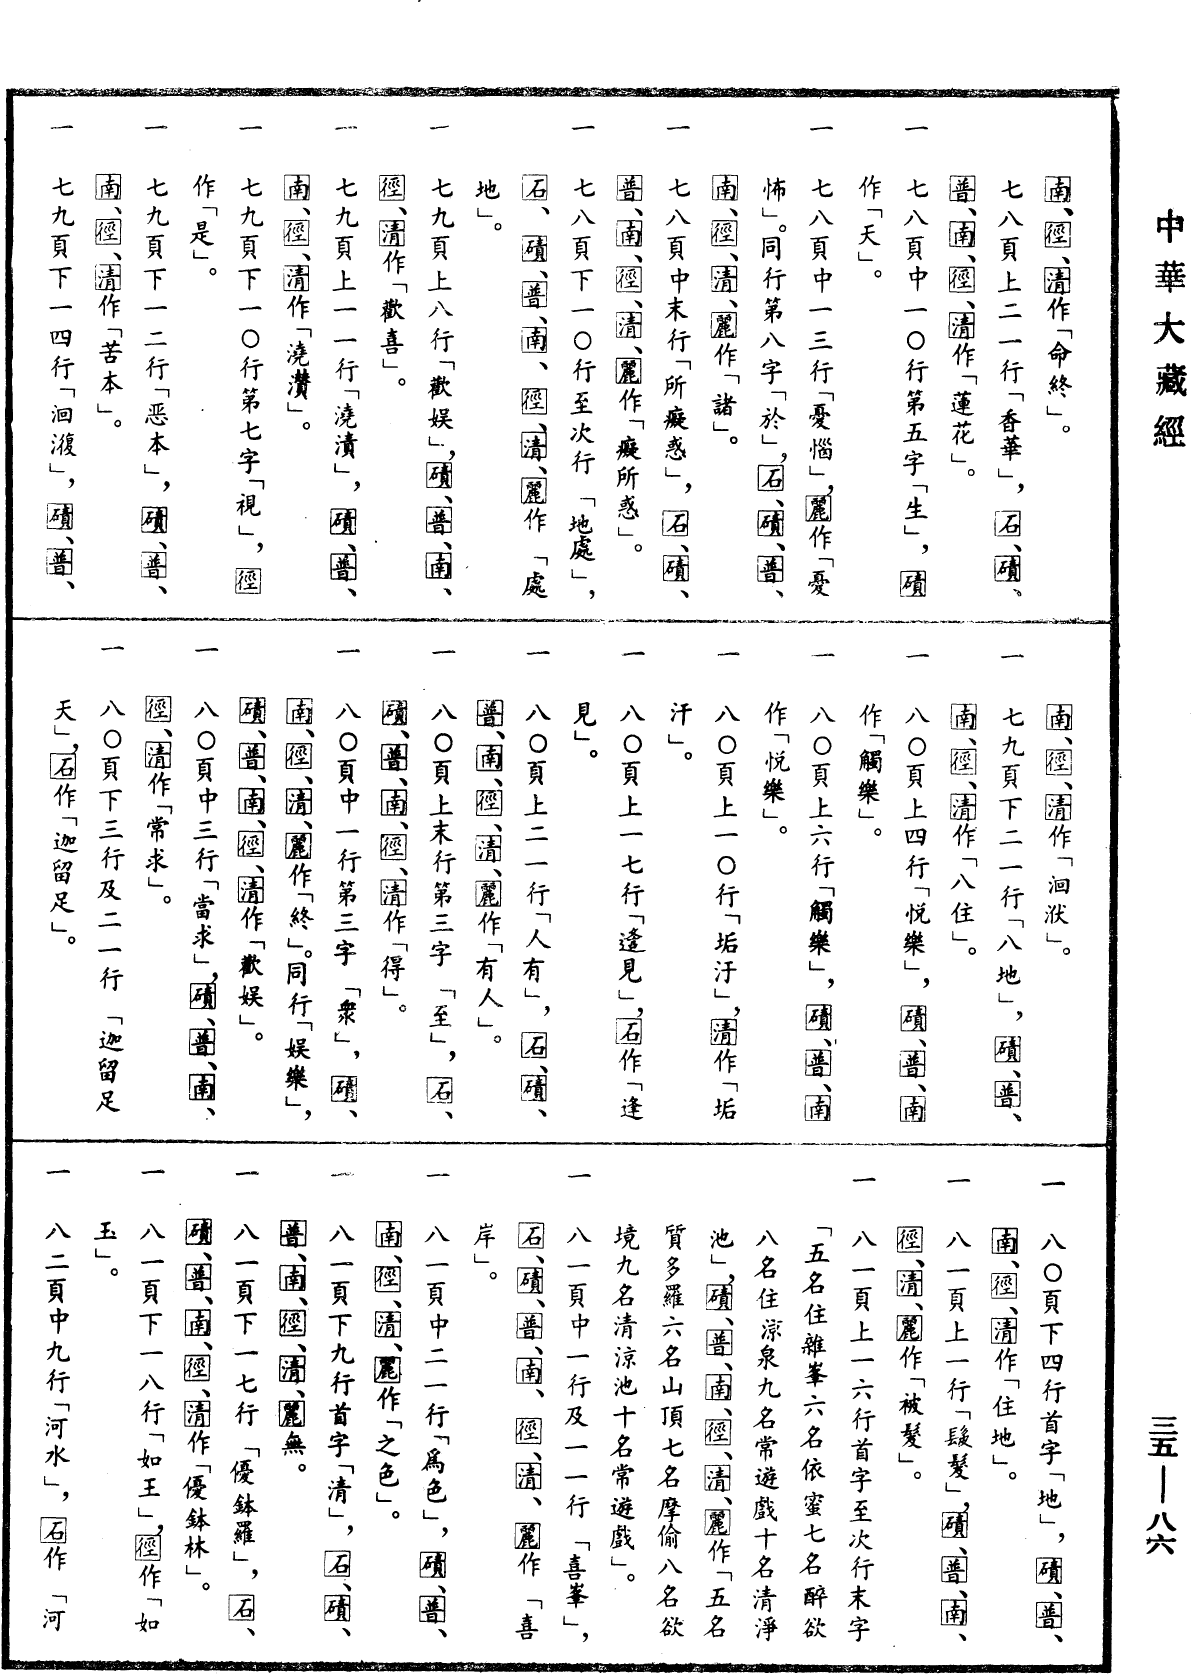 中華大藏經
三五—八六
南、徑、清作「命終」。
一 七八頁上二一行「香華」，石、磧、
普、南、徑、清作「蓮花」。
一 七八頁中一〇行第五字「生」，磧
作「天」。
一 七八頁中一三行「憂惱」，麗作「憂
怖」。同行第八字「於」，石、磧、普、
南、徑、清、麗作「諸」。
一 七八頁中末行「所癡惑」，石、磧、
普、南、徑、清、麗作「癡所惑」。
一 七八頁下一〇行至次行「地處」，
石、磧、普、南、徑、清、麗作「處
地」。
一 七九頁上八行「歡娱」，磧、普、南、
徑、清作「歡喜」。
一 七九頁上一一行「澆漬」，磧、普、
南、徑、清作「澆灒」。
一 七九頁下一〇行第七字「視」，徑
作「是」。
一 七九頁下一二行「惡本」，磧、普、
南、徑、清作「苦本」。
一 七九頁下一四行「洄澓」，磧、普、
南、徑、清作「洄洑」。
一 七九頁下二一行「八地」，磧、普、
南、徑、清作「八住」。
一 八〇頁上四行「悦樂」，磧、普、南
作「觸樂」。
一 八〇頁上六行「觸樂」，磧、普、南
作「悦樂」。
一 八〇頁上一〇行「垢汙」，清作「垢
汗」。
一 八〇頁上一七行「逢見」，石作「逢
見」。
一 八〇頁上二一行「人有」，石、磧、
普、南、徑、清、麗作「有人」。
一 八〇頁上末行第三字「至」，石、
磧、普、南、徑、清作「得」。
一 八〇頁中一行第三字「衆」，磧、
南、徑、清、麗作「終」。同行「娱樂」，
磧、普、南、徑、清作「歡娱」。
一 八〇頁中三行「當求」，磧、普、南、
徑、清作「常求」。
一 八〇頁下三行及二一行「迦留足
天」，石作「迦留足」。
一 八〇頁下四行首字「地」，磧、普、
南、徑、清作「住地」。
一 八一頁上一行「髲髮」，磧、普、南、
徑、清、麗作「被髮」。
一 八一頁上一六行首字至次行末字
「五名住雜峯六名依蜜七名醉欲
八名住涼泉九名常遊戲十名清淨
池」，磧、普、南、徑、清、麗作「五名
質多羅六名山頂七名摩偷八名欲
境九名清涼池十名常遊戲」。
一 八一頁中一行及一一行「喜峯」，
石、磧、普、南、徑、清、麗作「喜
岸」。
一 八一頁中二一行「爲色」，磧、普、
南、徑、清、麗作「之色」。
一 八一頁下九行首字「清」，石、磧、
普、南、徑、清、麗無。
一 八一頁下一七行「優鉢羅」，石、
磧、普、南、徑、清作「優鉢林」。
一 八一頁下一八行「如王」，徑作「如
玉」。
一 八二頁中九行「河水」，石作「河